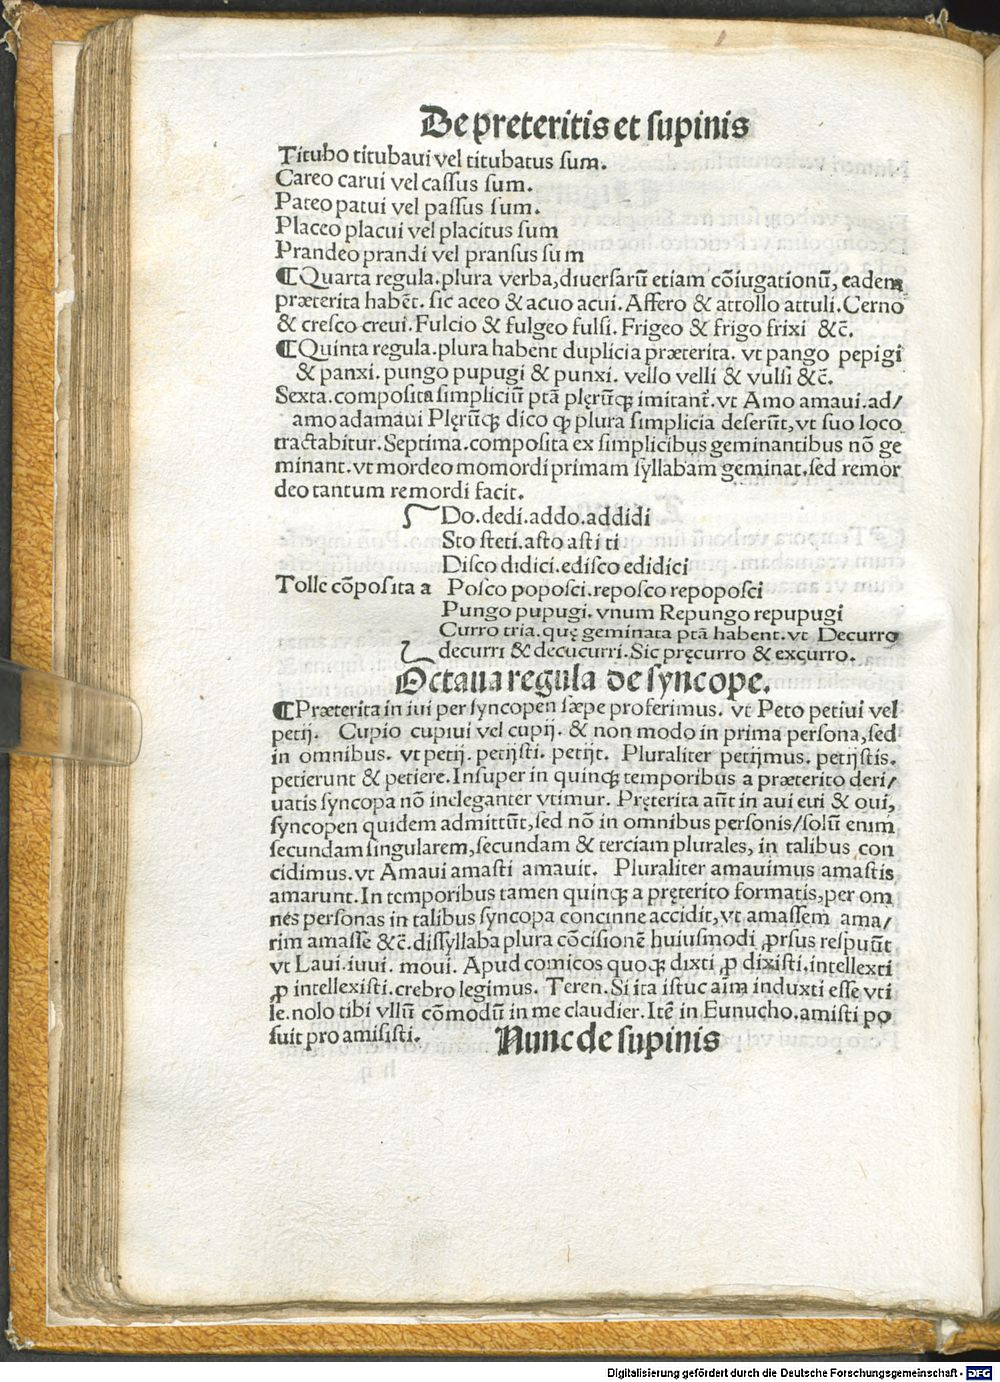 De preteritis et supinis
Titubo titubaui vel titubatus sum.
Careo carui vel cassus sum.
Pateo patui vel passus sum.
Placeo placui vel placitus sum
Prandeo prandi vel pransus sum
¶Quarta regula.plura verba,diuersarū etiam cōiugationū, eadem
præterita habēt. sic aceo & acuo acui. Affero & attollo attuli.Cerno
& cresco creui.Fulcio & fulgeo fulsi. Frigeo & frigo frixi &c̄.
¶Quinta regula.plura habent duplicia præterita. vt pango pepigi
& panxi. pungo pupugi & punxi. vello velli & vulsi &c̄.
Sexta.composita simpliciū ptā plęrūqꝫ imitant̄.vt Amo amaui.ad/
amo adamaui Plęrūqꝫ dico ꝙ plura simplicia deserūt,vt suo loco
tractabitur.Septima.composita ex simplicibus geminantibus nō ge
minant.vt mordeo momordi primam syllabam geminat.sed remor
deo tantum remordi facit.
Do.dedi.addo.addidi
Sto steti.asto astiti
Disco didici.edisco edidici
Tolle cōposita a Posco poposci.reposco repoposci
Pungo pupugi. vnum Repungo repupugi
Curro tria.quę geminata ptā habent.vt Decurro
decurri & decucurri.Sic pręcurro & excurro.
Octaua regula de syncope.
¶Præterita in iui per syncopen sæpe proferimus. vt Peto petiui vel
petij. Cupio cupiui vel cupij. & non modo in prima persona,sed
in omnibus. vt petij. petijsti. petijt. Pluraliter petijmus. petijstis.
petierunt & petiere.Insuper in quinqꝫ temporibus a præterito deri/
uatis syncopa nō ineleganter vtimur. Pręterita aūt in aui eui & oui,
syncopen quidem admittūt,sed nō in omnibus personis/solū enim
secundam singularem,secundam & terciam plurales, in talibus con
cidimus.vt Amaui amasti amauit. Pluraliter amauimus amastis
amarunt.In temporibus tamen quinqꝫ a pręterito formatis,per om
nes personas in talibus syncopa concinne accidit,vt amassem ama/
rim amasse &c̄.dissyllaba plura cōcisionē huiusmodi ꝓrsus respuūt
vt Laui.iuui. moui. Apud comicos quoqꝫ dixti ꝓ dixisti.intellexti
ꝓ intellexisti.crebro legimus. Teren.Si ita istuc aīm induxti esse vti
le.nolo tibi vllū cōmodū in me claudier.Itē in Eunucho.amisti po
suit pro amisisti.
Nunc de supinis
Digitalisierung gefördert durch die Deutsche Forschungsgemeinschaft - DFG